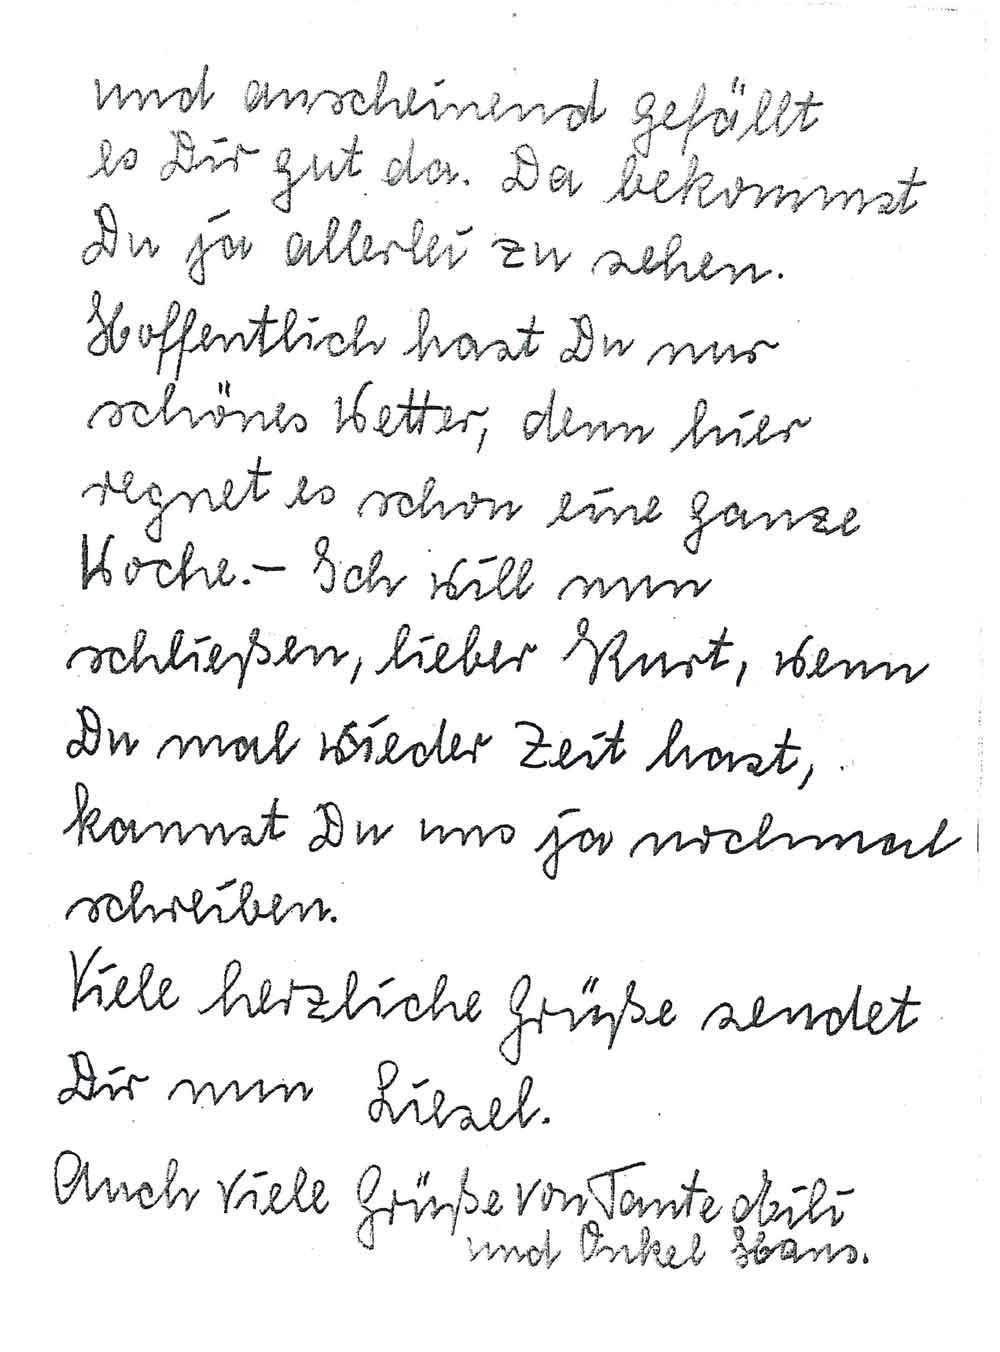 und anscheinend gefällt
es Dir gut da. Da bekommst
Du ja allerlei zu sehen.
Hoffentlich hast Du nur
schönes Wetter, denn hier
regnet es schon eine ganze
Woche.– Ich will nun
schließen, lieber Kurt, wenn
Du mal wieder Zeit hast,
kannst Du uns ja nochmal
schreiben.
Viele herzliche Grüße sendet
Dir nun Liesel.
Auch viele Grüße von Tante
und Onkel Hans.